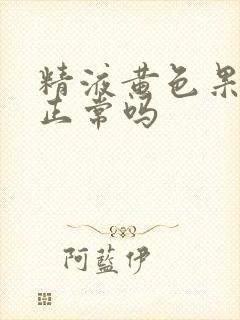 精液黄色果
正常吗
阿蓝伊